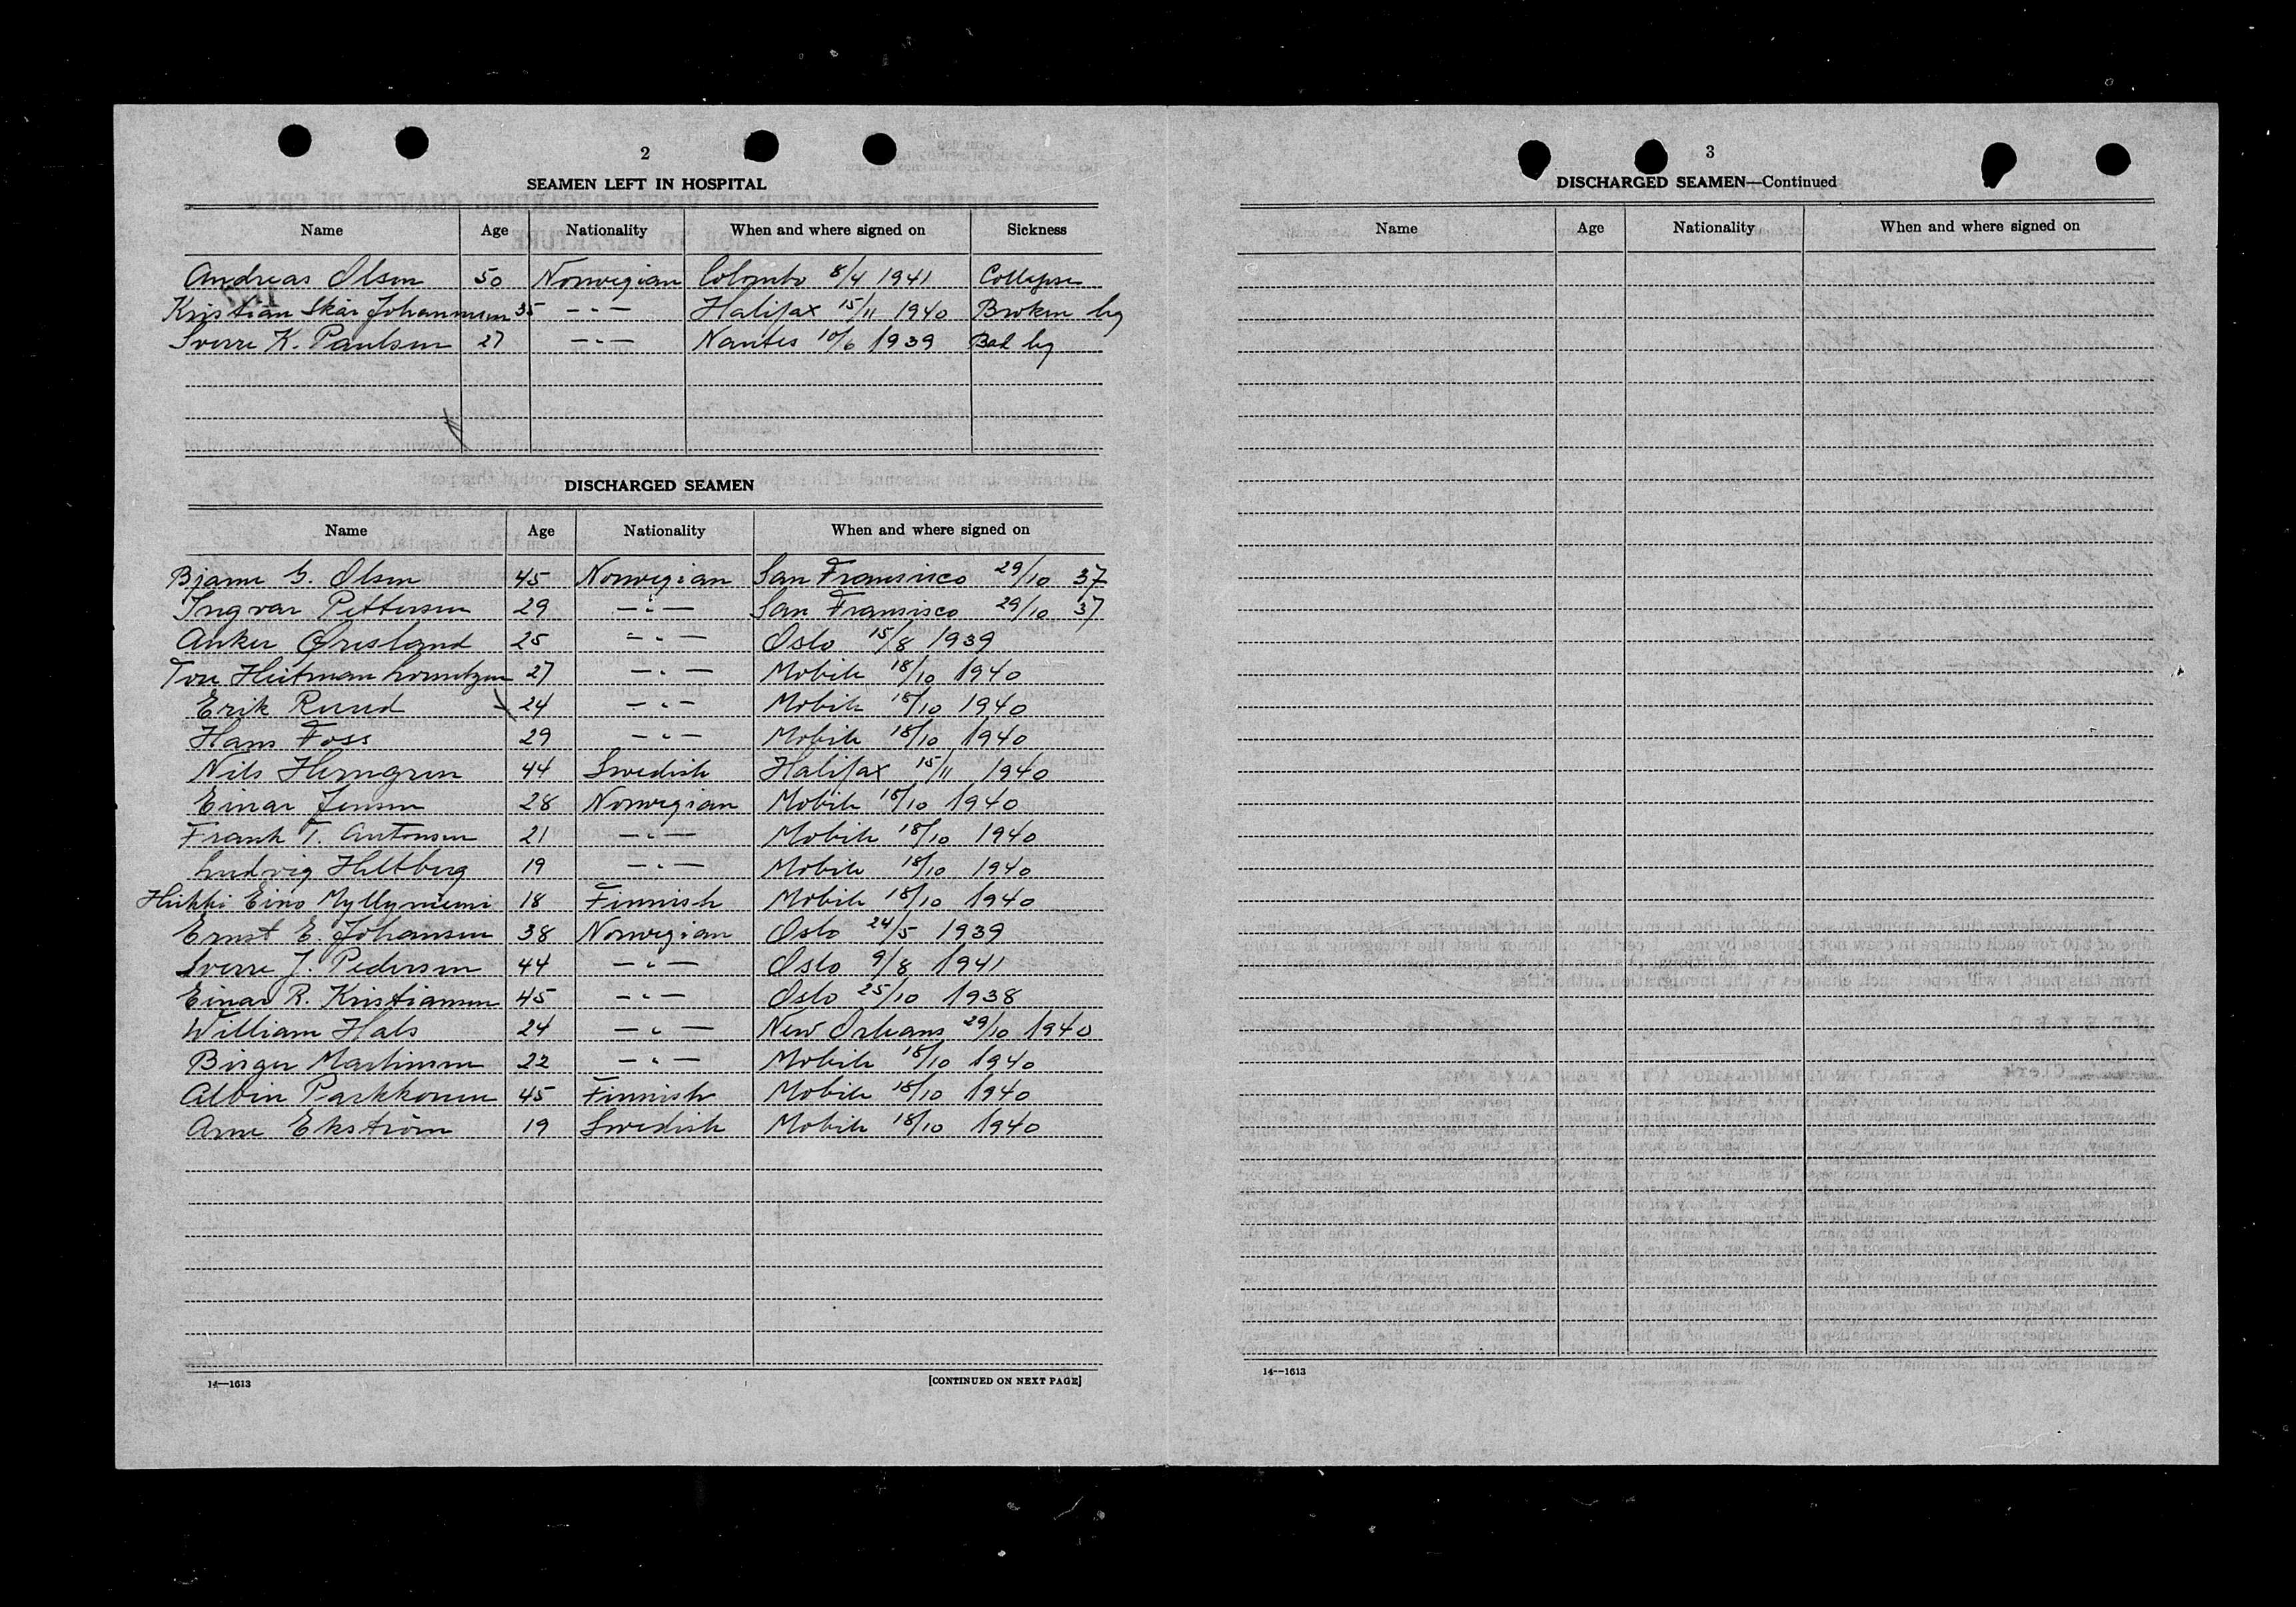 2
SEAMEN LEFT IN HOSPITAL
Name Age Nationality When and where signed on Sickness
Andreas Olsen 50 Norwegian Colombo 8/4 1941 Collapse
Kristian Skår Johannesen 35 —"— Halifax 15/11 1940 Broken leg
Sverre K. Paulsen 27 —"— Nantes 10/6 1939 Bad leg
DISCHARGED SEAMEN
Name Age Nationality When and where signed on
Bjarne G. Olsen 45 Norwegian San Fransisco 29/10 37
Ingvar Pettersen 29 —"— San Fransisco 29/10 37
Anker Øresland 25 —"— Oslo 15/8 1939
Tore Heitman Lorentzen 27 —"— Mobile 18/10 1940
Erik Ruud 24 —"— Mobile 18/10 1940
Hans Foss 29 —"— Mobile 18/10 1940
Nils Herngren 44 Swedish Halifax 15/11 1940
Einar Jensen 28 Norwegian Mobile 18/10 1940
Frank T. Antonsen 21 —"— Mobile 18/10 1940
Ludvig Heltberg 19 —"— Mobile 18/10 1940
Heikki Eino Myllyniemi 18 Finnish Mobile 18/10 1940
Ernst E. Johansen 38 Norwegian Oslo 24/5 1939
Sverre J. Pedersen 44 —"— Oslo 9/8 1941
Einar R. Kristiansen 45 —"— Oslo 25/10 1938
William Hals 24 —"— New Orleans 29/10 1940
Birger Martinsen 22 —"— Mobile 18/10 1940
Albin Parkkonen 45 Finnish Mobile 18/10 1940
Arne Ekström 19 Swedish Mobile 18/10 1940
14—1613 [CONTINUED ON NEXT PAGE]
3
DISCHARGED SEAMEN—Continued
Name Age Nationality When and where signed on
14—1613